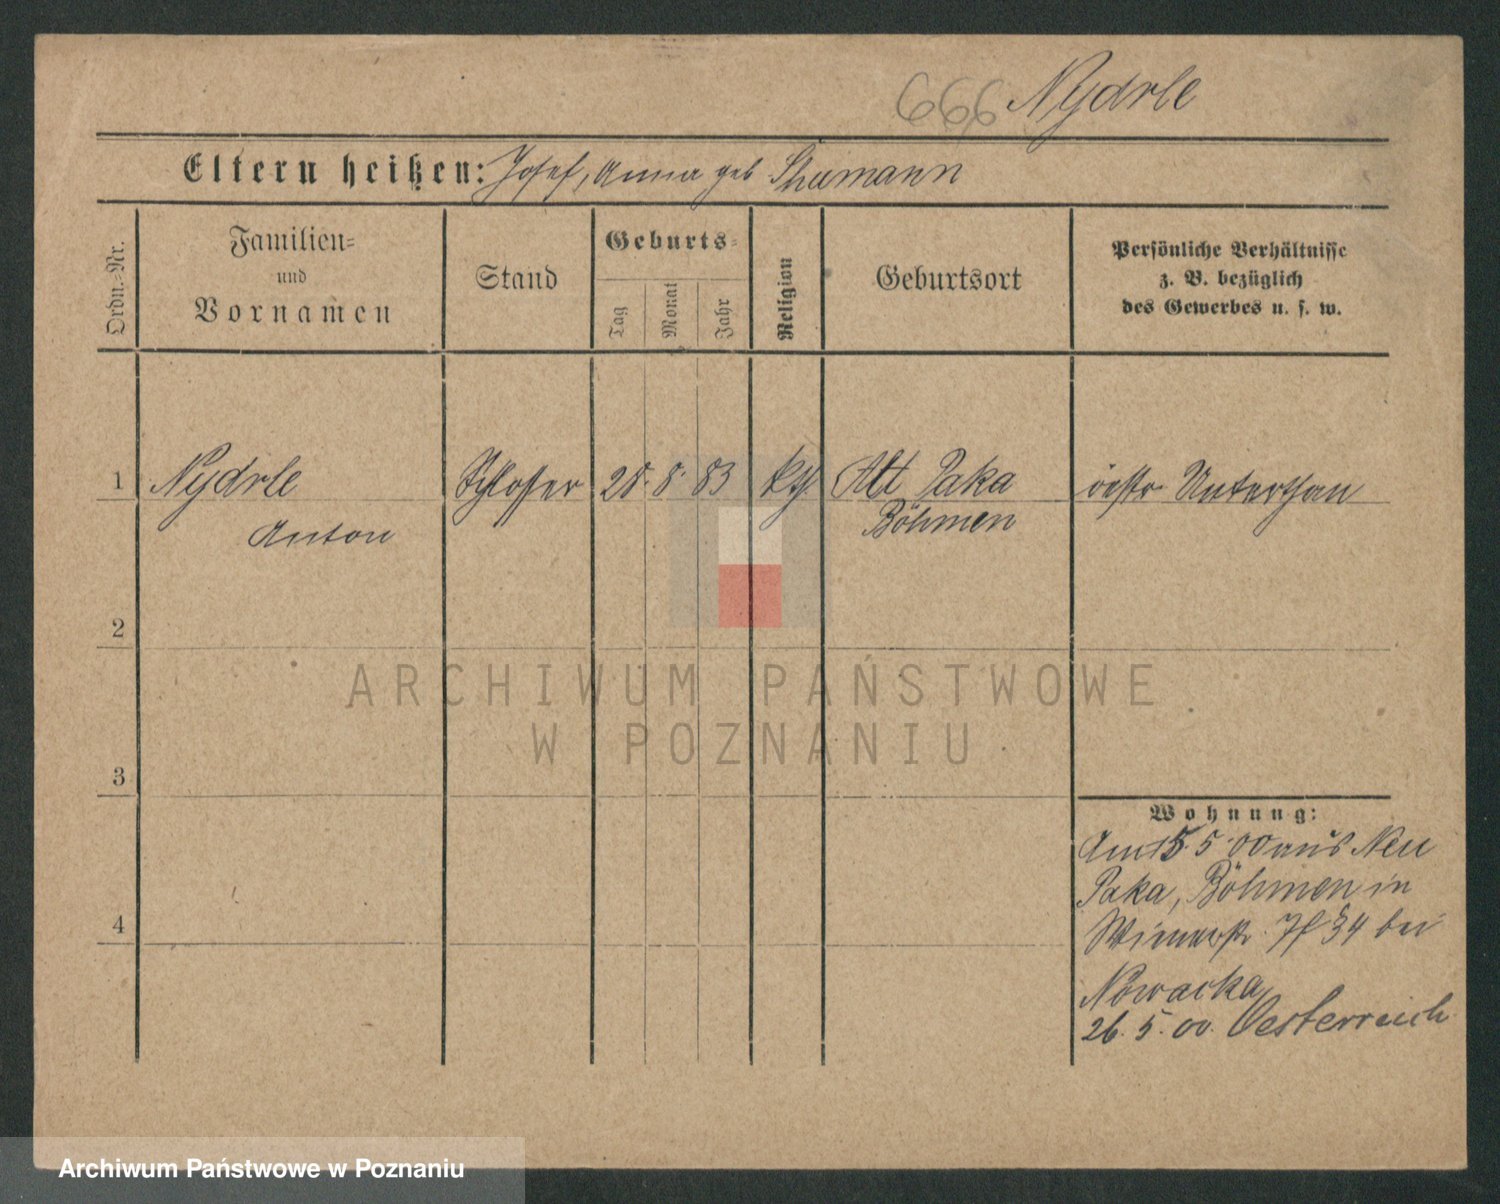 666 Nydrle
Eltern heißen: Josef, Anna geb Shumann
Ordn.-Nr.
Familien-
und
Vornamen
Stand
Geburts-
Tag
Monat
Jahr
Religion
Geburtsort
Persönliche Verhältnisse
z. B. bezüglich
des Gewerbes u. s. w.
1 Nydrle Schlosser 28. 8. 83 kth Alt Paka österr Unterthan
Anton Böhmen
2
3
4
Wohnung:
Am 15 5 00 aus Neu
Paka, Böhmen in
bei
Nowacka
26. 5. 00. Oesterreich
ARCHIWUM PAŃSTWOWE
W POZNANIU
Archiwum Państwowe w Poznaniu